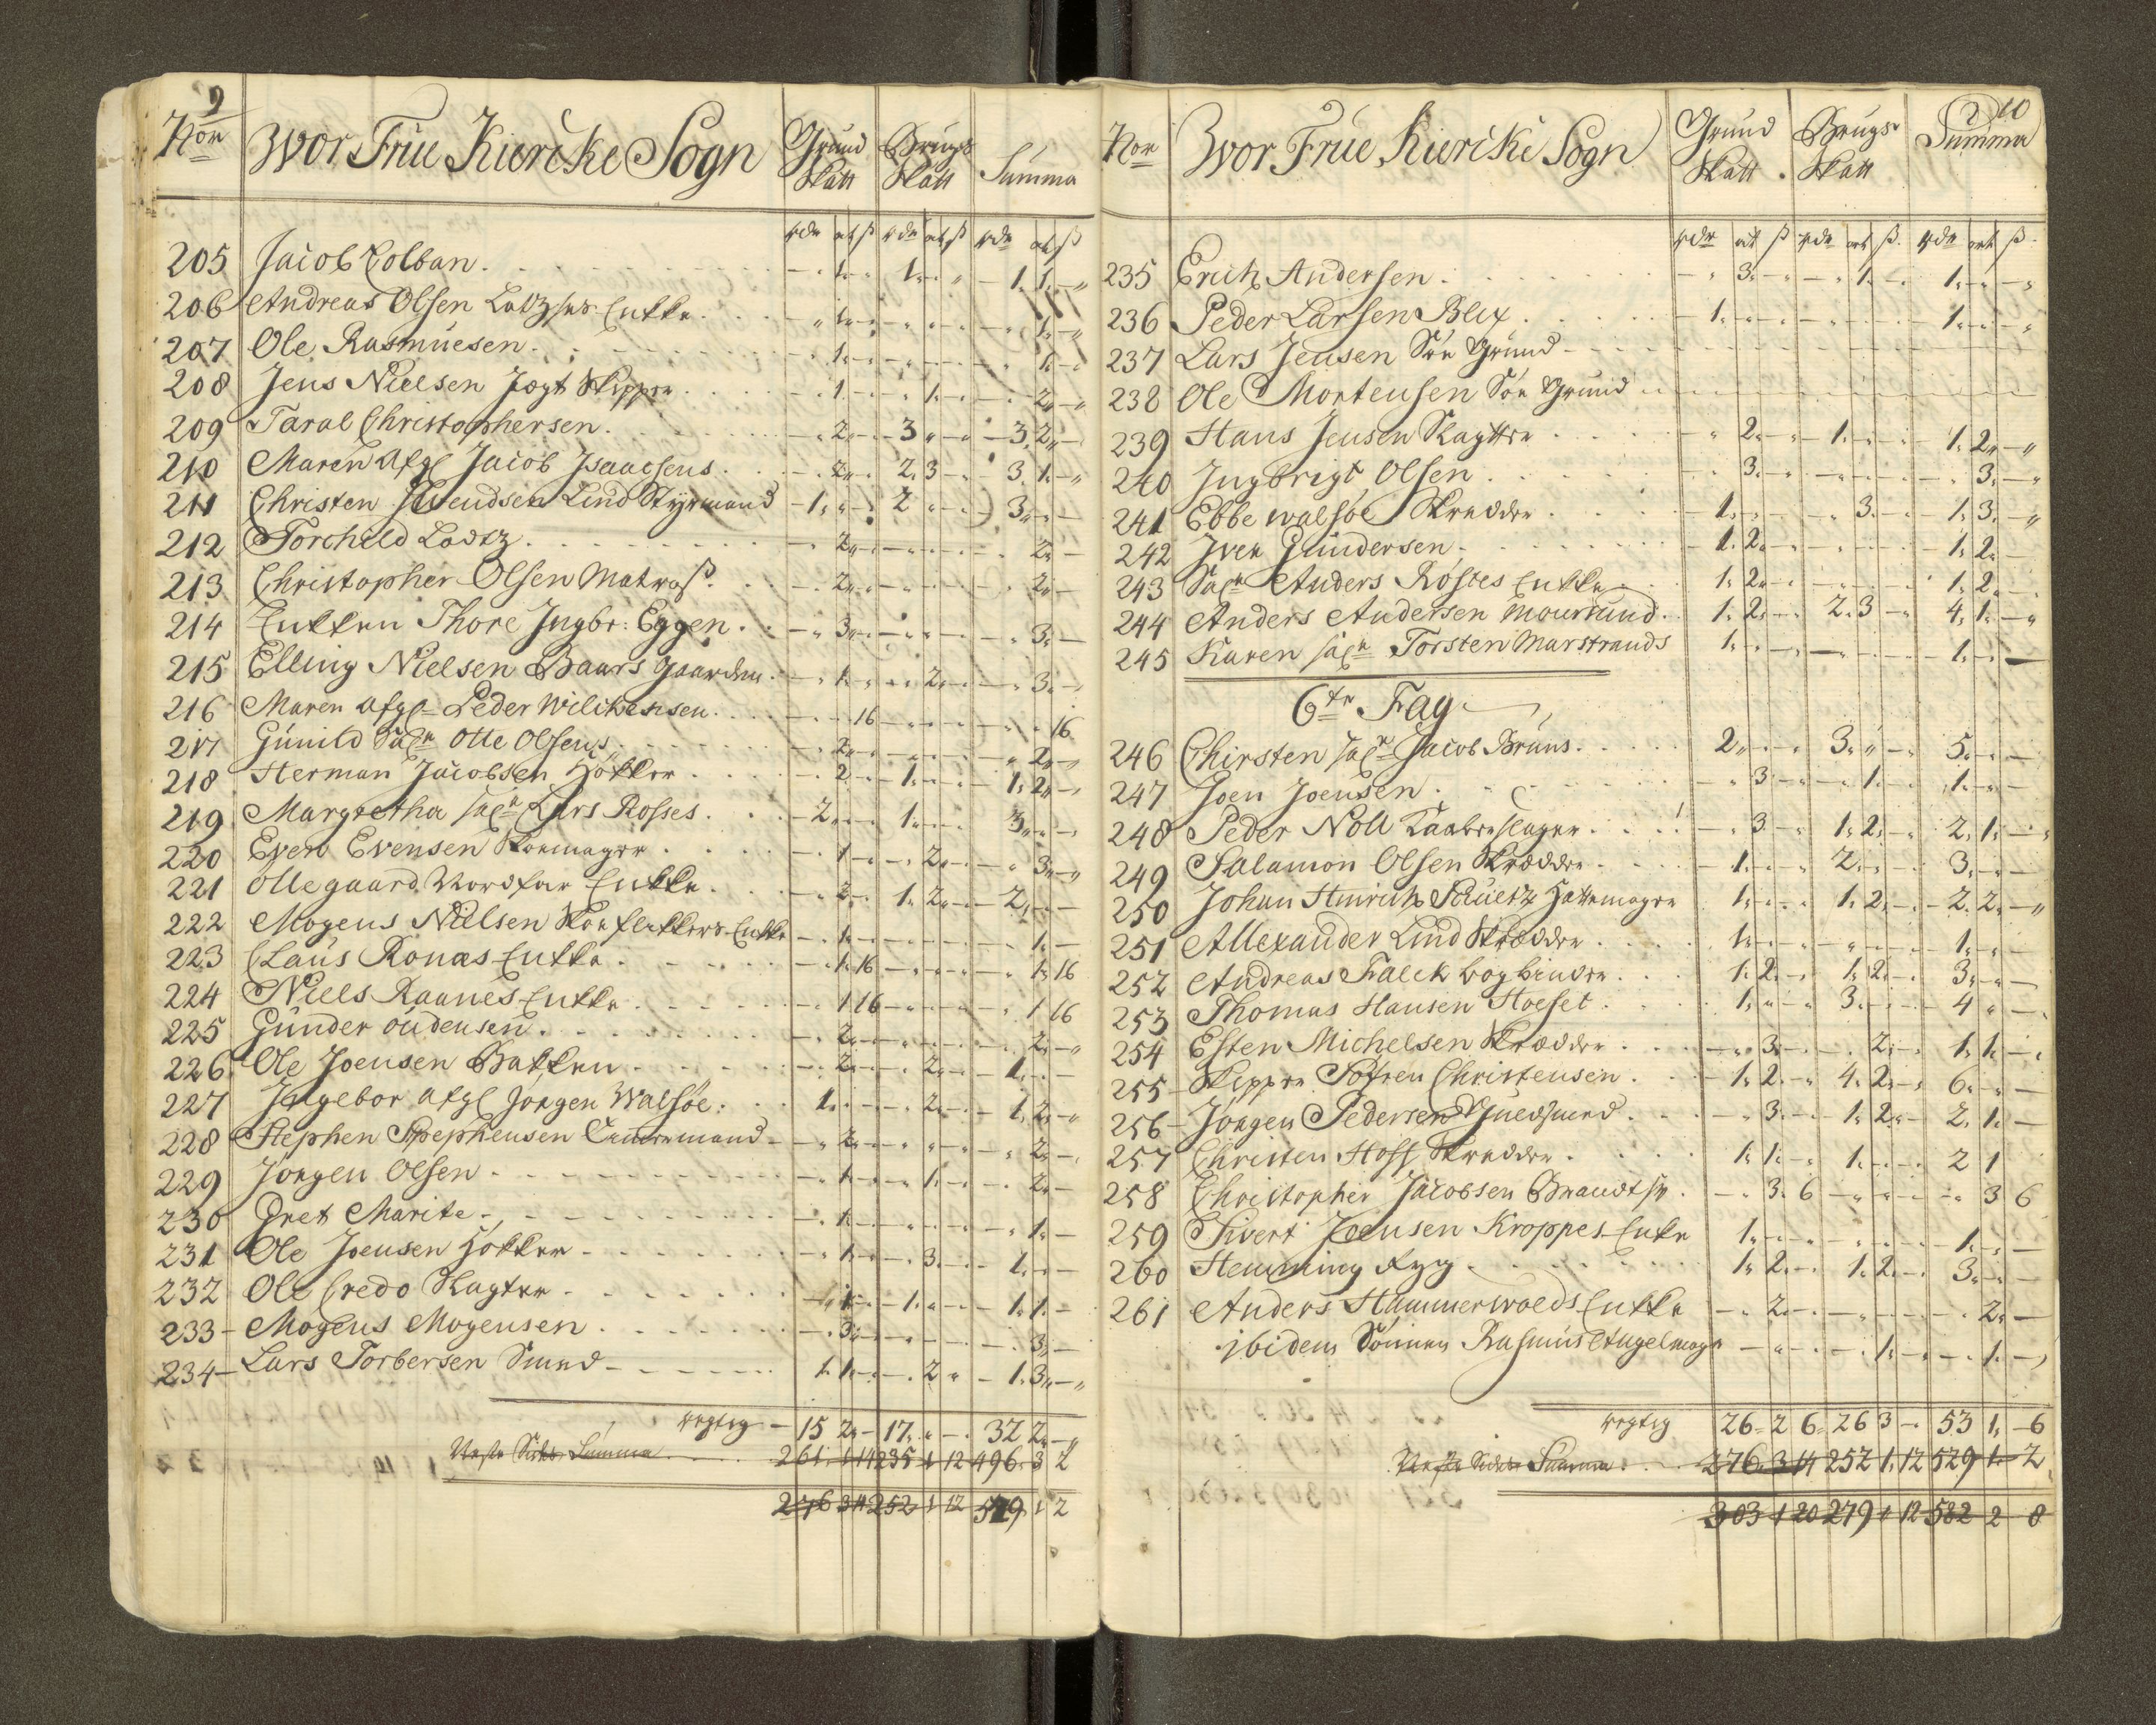 9
Nor Wor Frúe Kiericke Sogn Grúnd Skatt Brúgs Skatt Súmma
rdr ort ß rdr ort ß rdr ort ß
205 Jacob Colban. 1. 1. 1. 1.
206 Andreas Olsen Enkke. 1. 1.
207 Ole Rasmúesen. 1. 1.
208 Jens Nielsen Jægt Skipper. 1. 1. 2.
209 Taral Christophersen. 2. 3 3. 2.
210 Maren Afgl Jacob Isaacsens. 2. 2. 3 3. 1.
211 Christen Svendsen Lind Styrmand 1. 2 3.
212 Torchild Lodtz. 2. 2.
213 Christopher Olsen Matroß. 2. 2.
214 Enkken Thore Ingbr: Eggen. 3. 3.
215 Elling Nielsen Baars gaarden. 1. 2. 3.
216 Maren Afgl Peder Wilchensen. 16 16
217 Gúnild Sal Otte Olsens. 2. 2.
218 Herman Jacobsen Høkker 2. 1. 1. 2.
219 Margretha sal Lars Rosses. 2. 1. 3.
220 Even Evensen Skoemager 1 2. 3.
221 Ollegaard Nordfar Enkke. 2. 1. 2. 2.
222 Mogens Nielsen Skoeflikkers Enkke 1. 1.
223 Claús Ronæs Enkke. 1. 16 1. 16
224 Niels Raanes Enkke 1 16 1 16
225 Gúnder oúdensen. 2. 2.
226 Ole Joensen Bakken 2. 2. 1.
227 Ingebor Afgl Jørgen Walsøe. 1. 2. 1. 2.
228 Stephen Stephensen Tømmermand 2. 2.
229 Jørgen Olsen 1. 1. 2.
230 Gret Marite. 1. 1.
231 Ole Joensen Høkker 1. 3. 1.
232 Ole Credo Slagter 1. 1. 1. 1.
233 Mogens Mogensen. 3. 3.
234 Lars Torbersen Smed 1. 1. 2 1. 3.
15 2. 17. 32 2.
Súmma 261. 1 14 235 1 12 496. 3 2
276 3 14 252 1 12 529 1 2
10
Nor Wor Frúe Kiericke Sogn Grúnd Skatt. Brúgs Skatt Súmma
rdr ort ß rdr ort ß. rdr ort ß.
235 Erich Andersen. 3. 1. 1.
236 Peder Larsen Blix. 1. 1.
237 Lars Jensen Grúnd
238 Ole Mortensen Grúnd
239 Hans Jensen Slagter 2. 1. 1. 2.
240 Ingbrigt Olsen. 3. 3.
241 Ebbe walsøe Skredder. 1. 3. 1. 3.
242 Iver Gúndersen. 1. 2. 1. 2.
243 Sal Anders Røstes Enkke 1. 2. 1. 2.
244 Anders Andersen Mourlund. 1. 2. 2. 3 4. 1.
245 Karen sal Torsten Marstrands 1. 1.
6te Fag
246 Chirsten sal Jacob Brúns. 2. 3. 5.
247 Joen Joensen. 3. 1. 1.
248 Peder Noll Kaaberslager. 3. 1. 2. 2. 1.
249 Salamon Olsen Skrædder. 1. 2. 3.
250 Johan Hinrich Schúltz Hattemager 1. 1. 2. 2. 2.
251 Allexander Lind Skrædder. 1. 1.
252 Andreas Falck bogbinder. 1. 2. 1. 2. 3.
253 Thomas Hansen Hoeset. 1. 3. 4
254 Esten Michelsen Skrædder. 3. 2. 1. 1.
255 Skipper Søfren Christensen. 1. 2. 4. 2. 6.
256 Jørgen Pedersen Gúldsmed. 3. 1. 2. 2. 1.
257 Christen Hoff Skredder. 1. 1. 1. 2 1
258 Christopher Jacobsen Brandt 3. 6 3 6
259 Sivert Joensen Kroppes Enke 1. 1.
260 Henning Ryg 1. 2. 1. 2. 3.
261 Anders Hammerwolds Enkke 2. 2.
ibidem Sønnen Rasmús Angelmager 1. 1.
26. 2 6. 26 3 53 1. 6
Súmma. 276. 3 14 252 1. 12 529 1. 2
303 1 20 279 1 12 582 2 8